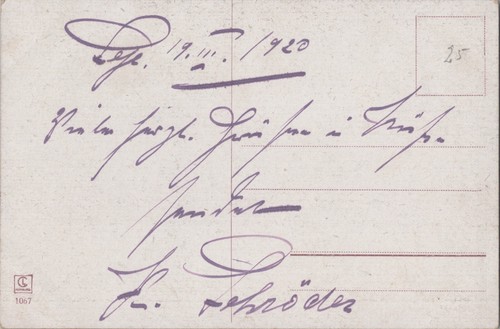 19. III. 1920
25
Viele herzl. Grüße u. Küße
sendet
Schröder
1067